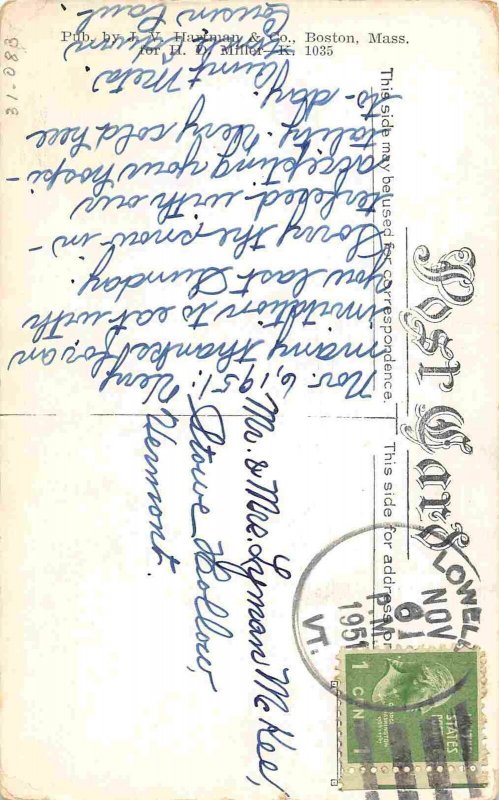 Post Card
This side may be used for correspondence.
This side for address on
Nov. 6, 1951: Very
many thanks for an
invitation to eat with
you last Sunday.
Sorry the snow in-
terfered with our
accepting your hospi-
tality. Very cold here
to-day.
Aunt Meta
Cousin Paul-
Mr. & Mrs. Lyman McKee,
Stowe Hollow,
Vermont.
LOWELL
NOV
6
P.M.
1951
VT.
STATES
1 CEN 1
WASHINGTON
Pub. by J. V. Hartman & Co., Boston, Mass.
for H. D. Miller-K. 1035
31-083